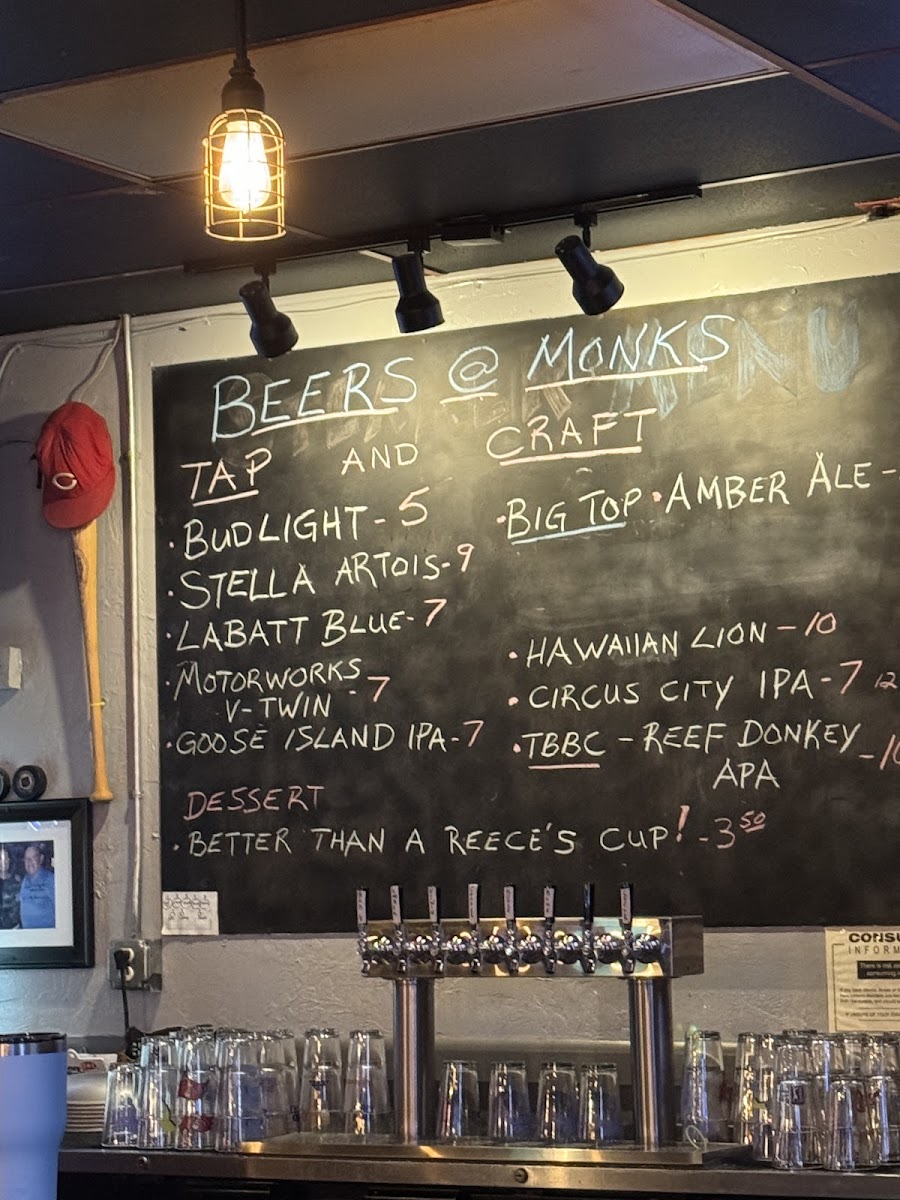 BEERS @ MONKS
MENU
TAP AND CRAFT
• BUD LIGHT - 5
• STELLA ARTOIS - 9
• LABATT BLUE - 7
• MOTORWORKS
V-TWIN - 7
• GOOSE ISLAND IPA - 7
• BIG TOP • AMBER ALE -
• HAWAIIAN LION - 10
• CIRCUS CITY IPA - 7 12
• TBBC - REEF DONKEY
APA
DESSERT
• BETTER THAN A REECE'S CUP! - 3 50
C
CONSU
INFORM